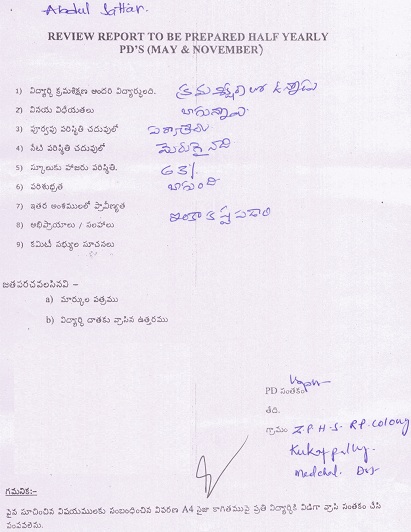 Abdul Sattar.
REVIEW REPORT TO BE PREPARED HALF YEARLY
PD'S (MAY & NOVEMBER)
1) విద్యార్థి క్రమశిక్షణ అందరి విద్యార్థులది. క్రమశిక్షణలో ఉన్నాడు
2) వినయ విధేయతలు బాగున్నాయి
3) పూర్వపు పరిస్థితి చదువులో
4) నేటి పరిస్థితి చదువులో మెరుగైనది
5) స్కూలుకు హాజరు పరిస్థితి. 63%
6) పరిశుభ్రత బాగుంది
7) ఇతర అంశములలో ప్రావీణ్యత
8) అభిప్రాయాలు / సలహాలు ఇంకా కష్టపడాలి
9) కమిటీ సభ్యుల సూచనలు
జతపరచవలసినవి -
a) మార్కుల పత్రము
b) విద్యార్థి దాతకు వ్రాసిన ఉత్తరము
PD సంతకం
తేది.
గ్రామం Z.P.H.S. R.P. Colony
Kukatpally.
Medchal. Dist
గమనిక:-
పైన సూచించిన విషయములకు సంబంధించిన వివరణ A4 సైజు కాగితముపై ప్రతి విద్యార్థికి విడిగా వ్రాసి సంతకం చేసి
పంపవలెను.